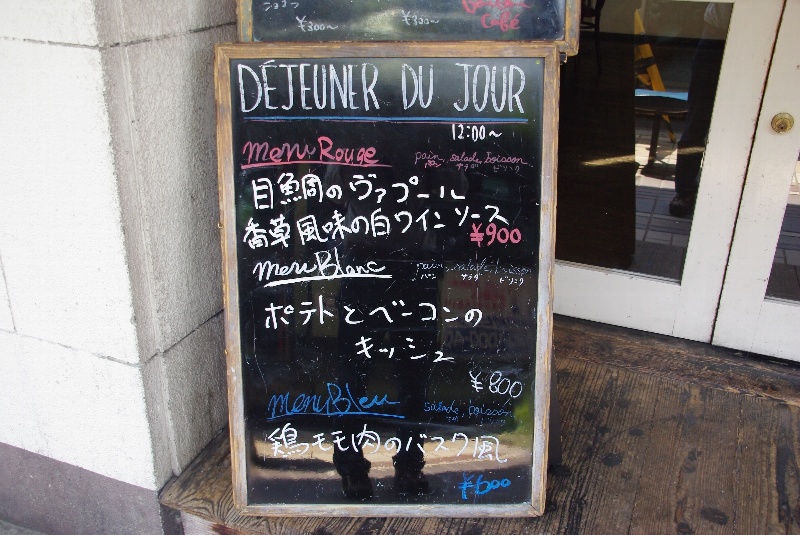 ショコラ
¥300~ ¥300~
Café
DÉJEUNER DU JOUR
12:00~
menu Rouge pain, salade, boisson
パン サラダ ドリンク
目鯛のヴァプール
香草風味の白ワインソース
¥900
menu Blanc pain, salade, boisson
パン サラダ ドリンク
ポテトとベーコンの
キッシュ
¥800
menu Bleu salade, boisson
サラダ ドリンク
鶏モモ肉のバスク風
¥600